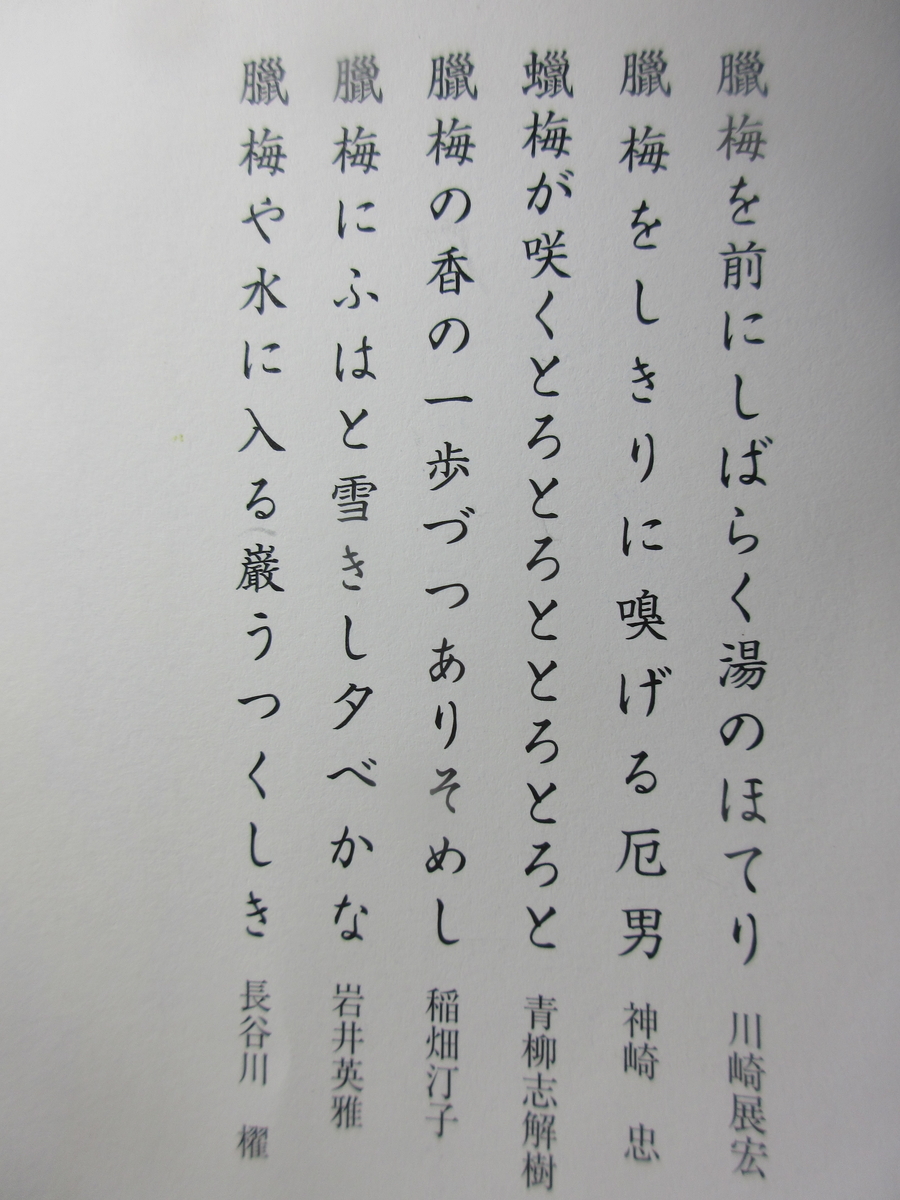 臘梅を前にしばらく湯のほてり 川崎展宏
臘梅をしきりに嗅げる厄男 神崎 忠
蠟梅が咲くとろとろとろととろとろと 青柳志解樹
臘梅の香の一歩づつありそめし 稲畑汀子
臘梅にふはと雪きし夕べかな 岩井英雅
臘梅や水に入る巌うつくしき 長谷川 櫂